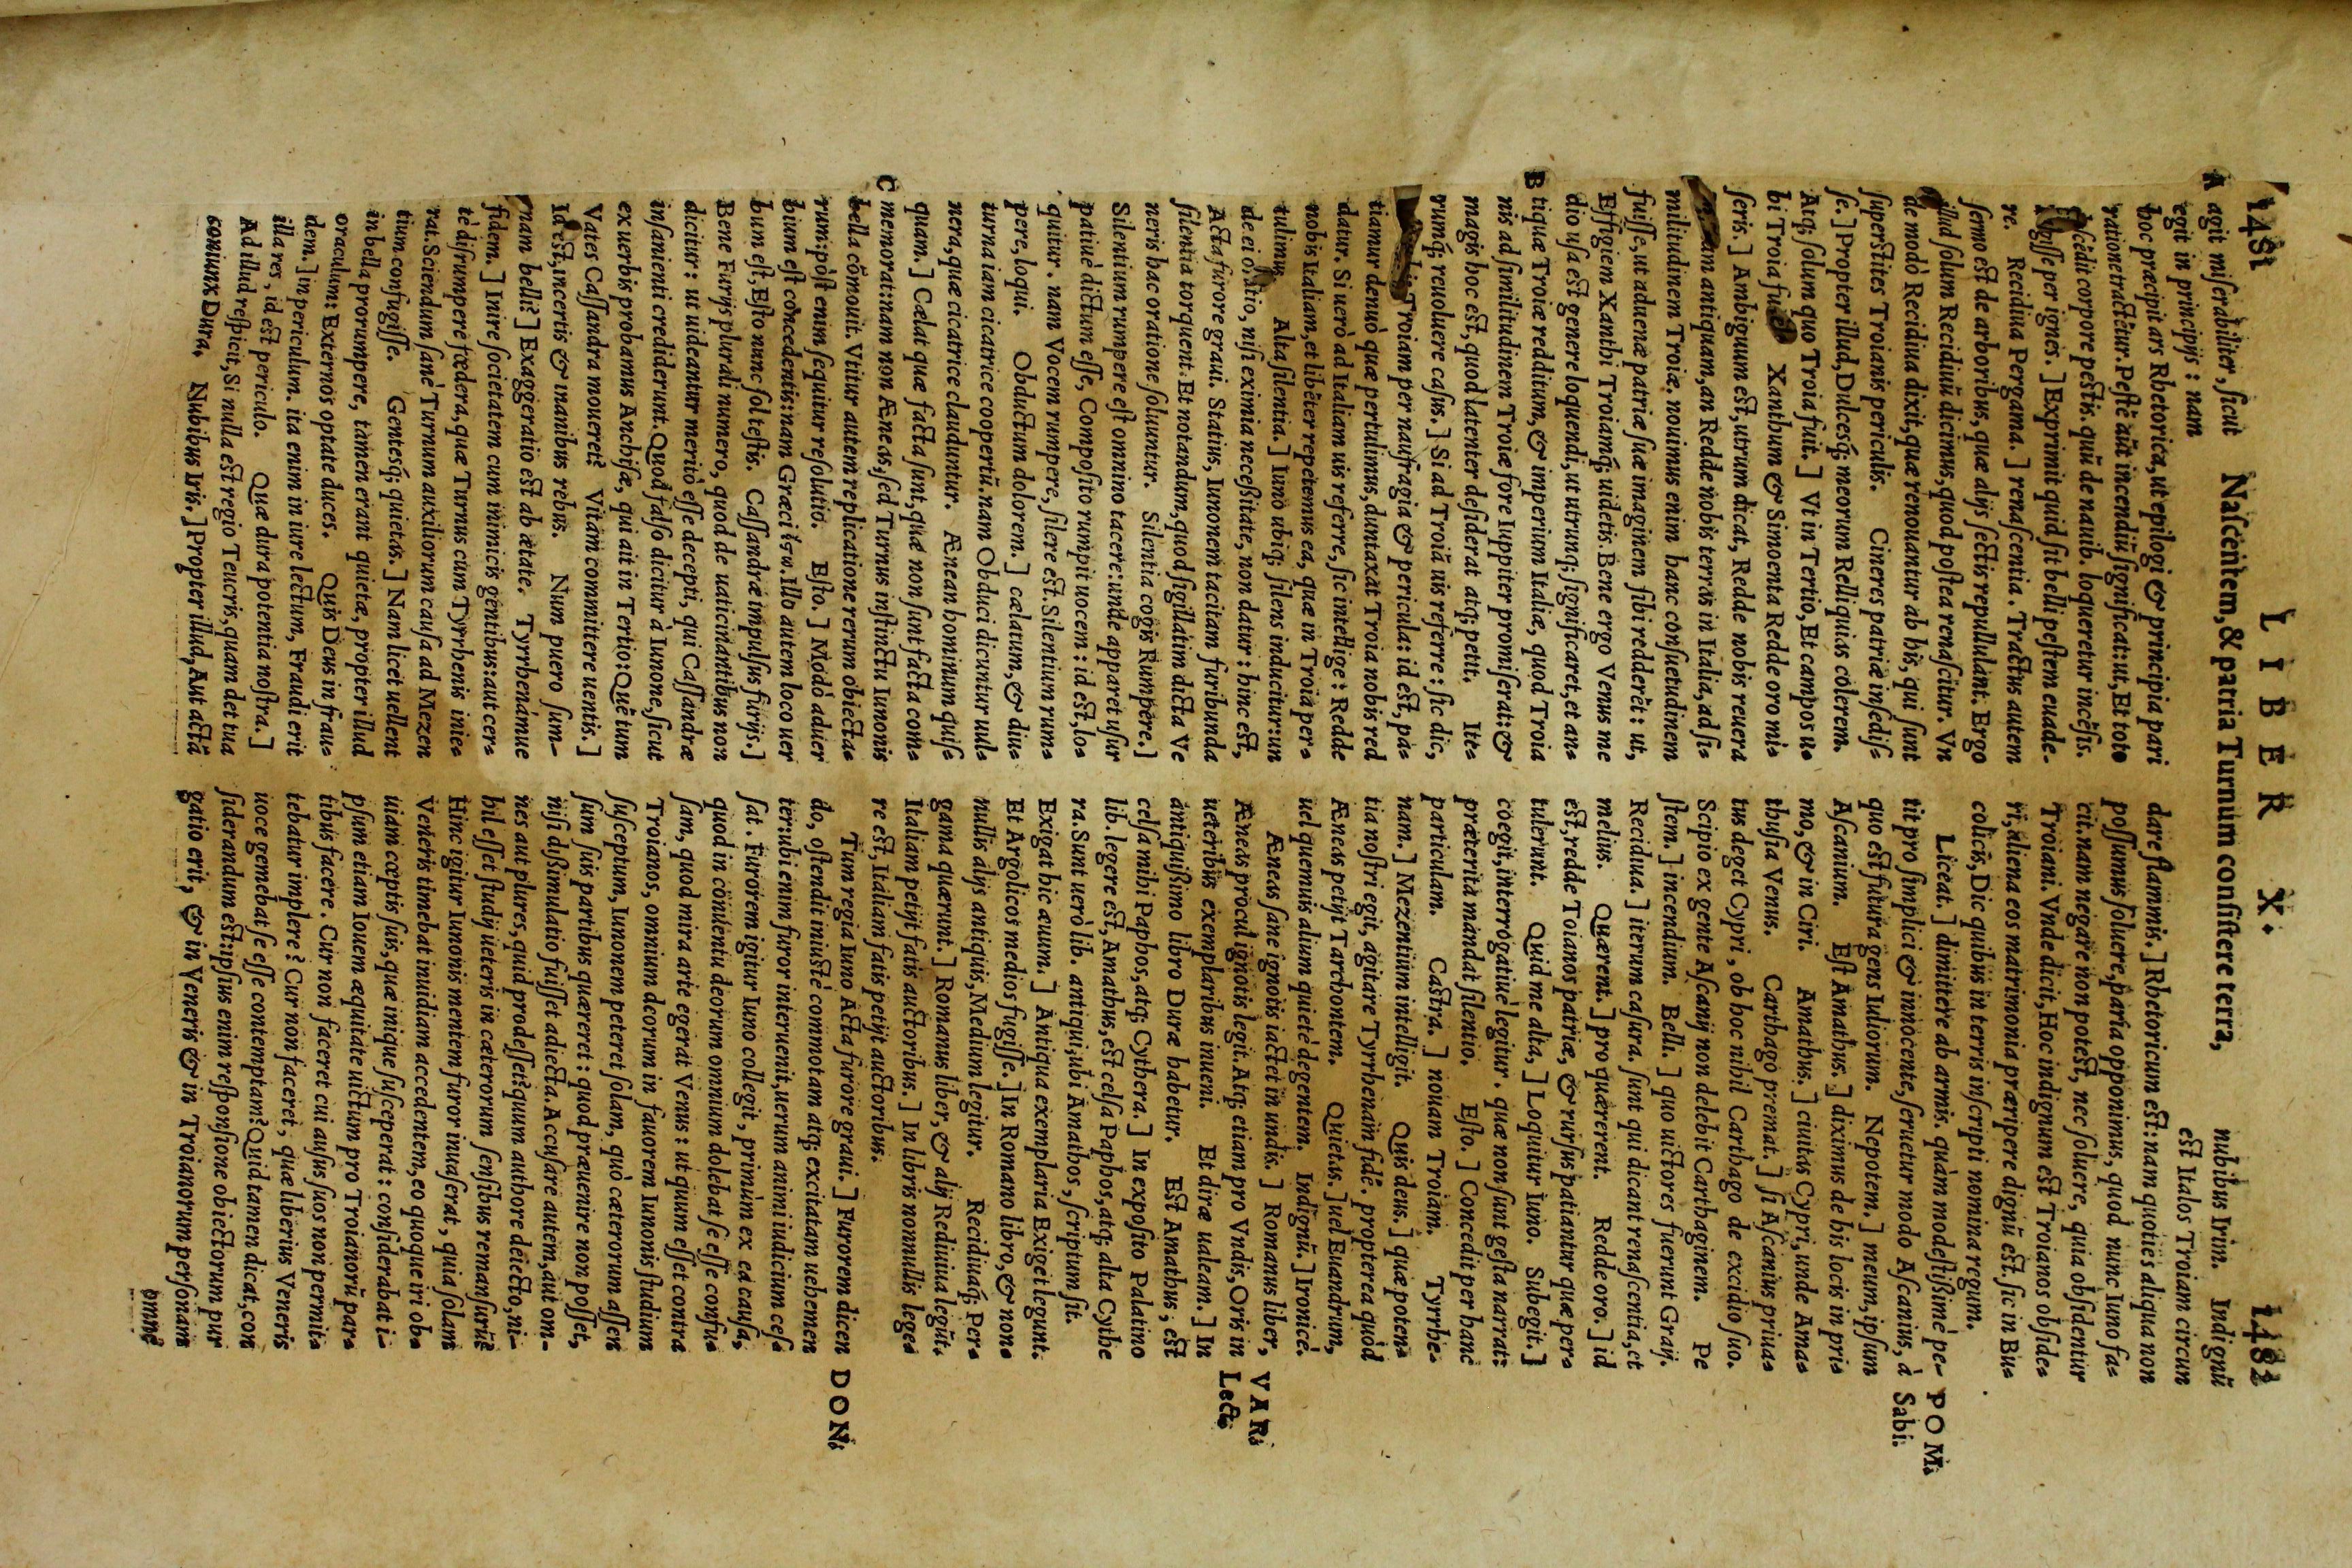 1481
L I B E R X.
1482
Naſcentem, & patria Turnum conſiſtere terra,
A agit miſerabiliter, ſicut
egit in principijs: nam
hoc præcipit ars Rhetorica, ut epilogi & principia pari
ratione tractẽtur. Peſtẽ aũt incendiũ ſignificat: ut, Et toto
deſcẽdit corpore peſtis. quũ de nauib. loqueretur incẽſis.
fugiſſe per ignes.] Exprimit quid ſit belli peſtem euade-
re. Recidiua Pergama.] renaſcentia. Tractus autem
ſermo eſt de arboribus, quæ alijs ſectis repullulant. Ergo
illud ſolum Recidiuũ dicimus, quod poſtea renaſcitur. Vn
de modò Recidiua dixit, quæ renouantur ab his, qui ſunt
ſuperſtites Troianis periculis. Cineres patriæ inſediſ-
ſe.] Propter illud, Dulcesq́; meorum Relliquias colerem.
Atq; ſolum quo Troia fuit.] Vt in Tertio, Et campos u-
bi Troia fuit. Xanthum & Simoenta Redde oro mi-
ſeris.] Ambiguum eſt, utrum dicat, Redde nobis reuera
am antiquam, an Redde nobis terras in Italia, ad ſi-
militudinem Troiæ. nouimus enim hanc cõſuetudinem
fuiſſe, ut aduenæ patriæ ſuæ imaginem ſibi redderẽt: ut,
Effigiem Xanthi Troiamq́; uidetis. Bene ergo Venus me
dio uſa eſt genere loquendi, ut utrunq; ſignificaret, et an-
B tiquæ Troiæ redditum, & imperium Italiæ, quod Troia
nis ad ſimilitudinem Troiæ fore Iuppiter promiſerat: &
magis hoc eſt, quod latenter deſiderat atq; petit. Ite-
rumq́; reuoluere caſus.] Si ad Troiã uis referre: ſic dic,
Troiam per naufragia & pericula: id est, pa-
tiamur denuò quæ pertulimus, duntaxat Troia nobis red
datur. Si uerò ad Italiam uis referre, ſic intellige: Redde
nobis Italiam, et libẽter repetemus ea, quæ in Troia per-
tulimus. Alta ſilentia.] Iuno ubiq; ſilens inducitur: un
de ei o, niſi eximia neceſsitate, non datur: hinc eſt,
Acta furore graui. Statius, Iunonem tacitam furibunda
ſilentia torquent. Et notandum, quod ſigillatim dicta Ve
neris hac oratione ſoluuntur. Silentia cogis Rumpere.]
Silentium rumpere eſt omnino tacere: unde apparet uſur
patiuè dictum eſſe, Compoſito rumpit uocem: id eſt, lo-
quitur. nam Vocem rumpere, ſilere eſt. Silentium rum-
pere, loqui. Obductum dolorem.] cælatum, & diu-
turna iam cicatrice coopertũ. nam Obduci dicuntur uul-
nera, quæ cicatrice clauduntur. Ænean hominum quiſ-
quam.] Cælat quæ facta ſunt, quæ non ſunt facta com-
C memorat: nam non Æneas, ſed Turnus inſtinctu Iunonis
bella cõmouit. Vtitur autem replicatione rerum obiecta-
rum: pòſt enim ſequitur reſolutio. Eſto.] Modò aduer
bium eſt concedentis: nam Græci ἔστω. Illo autem loco uer
bum eſt, Eſto nunc ſol teſtis. Caſſandræ impulſus furijs.]
Bene Furijs plurali numero, quod de uaticinantibus non
dicitur: ut uideantur meritò eſſe decepti, qui Caſſandræ
inſanienti crediderunt. Quod falſo dicitur à Iunone. ſicut
ex uerbis probamus Anchiſæ, qui ait in Tertio: Quẽ tum
Vates Caſſandra moueret? Vitam committere uentis.]
Id eſt, incertis & inanibus rebus. Num puero ſum-
mam belli?] Exaggeratio eſt ab ætate. Tyrrhenámue
fidem.] Inire ſocietatem cum inimicis gentibus: aut cer-
tè diſrumpere fœdera, quæ Turnus cum Tyrrhenis inie-
rat. Sciendum ſanè Turnum auxiliorum cauſa ad Mezen
tium confugiſſe. Gentesq́; quietas.] Nam licet uellent
in bella prorumpere, tamen erant quietæ, propter illud
oraculum: Externos optate duces. Quis Deus in frau-
dem.] in periculum. ita enim in iure lectum, Fraudi erit
illa res, id eſt periculo. Quæ dura potentia noſtra.]
Ad illud reſpicit, Si nulla eſt regio Teucris, quam det tua
coniunx Dura. Nubibus Iris.] Propter illud, Aut actã
nubibus Irim. Indignũ
eſt Italos Troiam circun
dare flammis.] Rhetoricum eſt: nam quoties aliqua non
poſſumus ſoluere, paria opponimus, quod nunc Iuno fa-
cit. nam negare non poteſt, nec ſoluere, quia obſidentur
Troiani. Vnde dicit, Hoc indignum eſt Troianos obſide-
ri, aliena eos matrimonia præripere dignũ eſt. ſic in Bu-
colicis, Dic quibus in terris inſcripti nomina regum.
Liceat.] dimittere ab armis. quàm modeſtiſsimè pe- POM.
tit pro ſimplici & innocente, ſeruetur modo Aſcanius, à Sabi.
quo eſt futura gens Iuliorum. Nepotem.] meum, ipſum
Aſcanium. Eſt Amathus.] diximus de his locis in pri-
mo, & in Ciri. Amathus.] ciuitas Cypri, unde Ama-
thuſia Venus. Carthago premat.] ſi Aſcanius priua-
tus deget Cypri, ob hoc nihil Carthago de excidio ſuo.
Scipio ex gente Aſcanij non delebit Carthaginem. Pe
ſtem.] incendium. Belli.] quo uictores fuerunt Graij.
Recidiua.] iterum caſura. ſunt qui dicant renaſcentia, et
melius. Quærent.] pro quærerent. Redde oro.] id
eſt, redde Toianos patriæ, & rurſus patiantur quæ per-
tulerunt. Quid me alta,] Loquitur Iuno. Subegit.]
coegit, interrogatiuè legitur. quæ non ſunt geſta narrat:
præterita mandat ſilentio. Eſto.] Concedit per hanc
particulam. Caſtra.] nouam Troiam. Tyrrhe-
nam.] Mezentium intelligit. Quis deus.] quæ poten-
tia noſtri egit, agitare Tyrrhenam fidẽ. propterea quòd
Æneas petijt Tarchontem. Quietas.] uel Euandrum,
uel quemuis alium quietè degentem. Indignũ.] Ironicè.
Æneas procul ignotis legit. Atq; etiam pro Vndis, Oris in VAR.
Æneas ſane ignotis iactet in undis.] Romanus liber,
ueteribus exemplaribus inueni. Et diræ ualeam.] In Lecti.
antiquiſsimo libro Duræ habetur. Eſt Amathus, eſt
celſa mihi Paphos, atq; Cythera.] In expoſito Palatino
lib. legere eſt, Amathus, eſt celſa Paphos, atq; alta Cythe
ra. Sunt uerò lib. antiqui, ubi Amathos, ſcriptum ſit.
Exigat hic æuum.] Antiqua exemplaria Exiget legunt.
Et Argolicos medios fugiſſe.] In Romano libro, & non-
nullis alijs antiquis, Medium legitur. Recidiuaq́; Per-
gama quærunt.] Romanus liber, & alij Rediuiua legũt.
Italiam petijt fatis auctoribus.] In libris nonnullis lege-
re eſt, Italiam fatis petijt auctoribus.
Tum regia Iuno Acta furore graui.] Furorem dicen DON.
do, oſtendit iniuſtè commotam atq; excitatam uehemen
ter: ubi enim furor interuenit, uerum animi iudicium ceſ-
ſat. Furorem igitur Iuno collegit, primùm ex ea cauſa,
quod in cõuentu deorum omnium dolebat ſe eſſe confu-
ſam, quod mira arte egerat Venus: ut quum eſſet contra
Troianos, omnium deorum in fauorem Iunonis ſtudium
ſuſceptum, Iunonem peteret ſolam, quò cæterorum aſſen
ſum ſuis partibus quæreret: quod præuenire non poſſet,
niſi diſsimulatio fuiſſet adiecta. Accuſare autem, aut om-
nes aut plures, quid prodeſſet? quum authore deiecto, ni-
hil eſſet ſtudij ueteris in cæterorum ſenſibus remanſurũ?
Hinc igitur Iunonis mentem furor inuaſerat, quia ſolam
Veneris timebat inuidiam accedentem, eo quoque iri ob-
uiam cœptis ſuis, quæ inique ſuſceperat: conſiderabat i-
pſum etiam Iouem æquitate uictum pro Troianorũ par-
tibus facere. Cur non faceret cui auſus ſuos non permit-
tebatur implere? Cur non faceret, quæ liberius Veneris
uoce gemebat ſe eſſe contemptam? Quid tamen dicat, con
ſiderandum eſt: ipſius enim reſponſione obiectorum pur
gatio erit, & in Veneris & in Troianorum perſonam
omnẽ